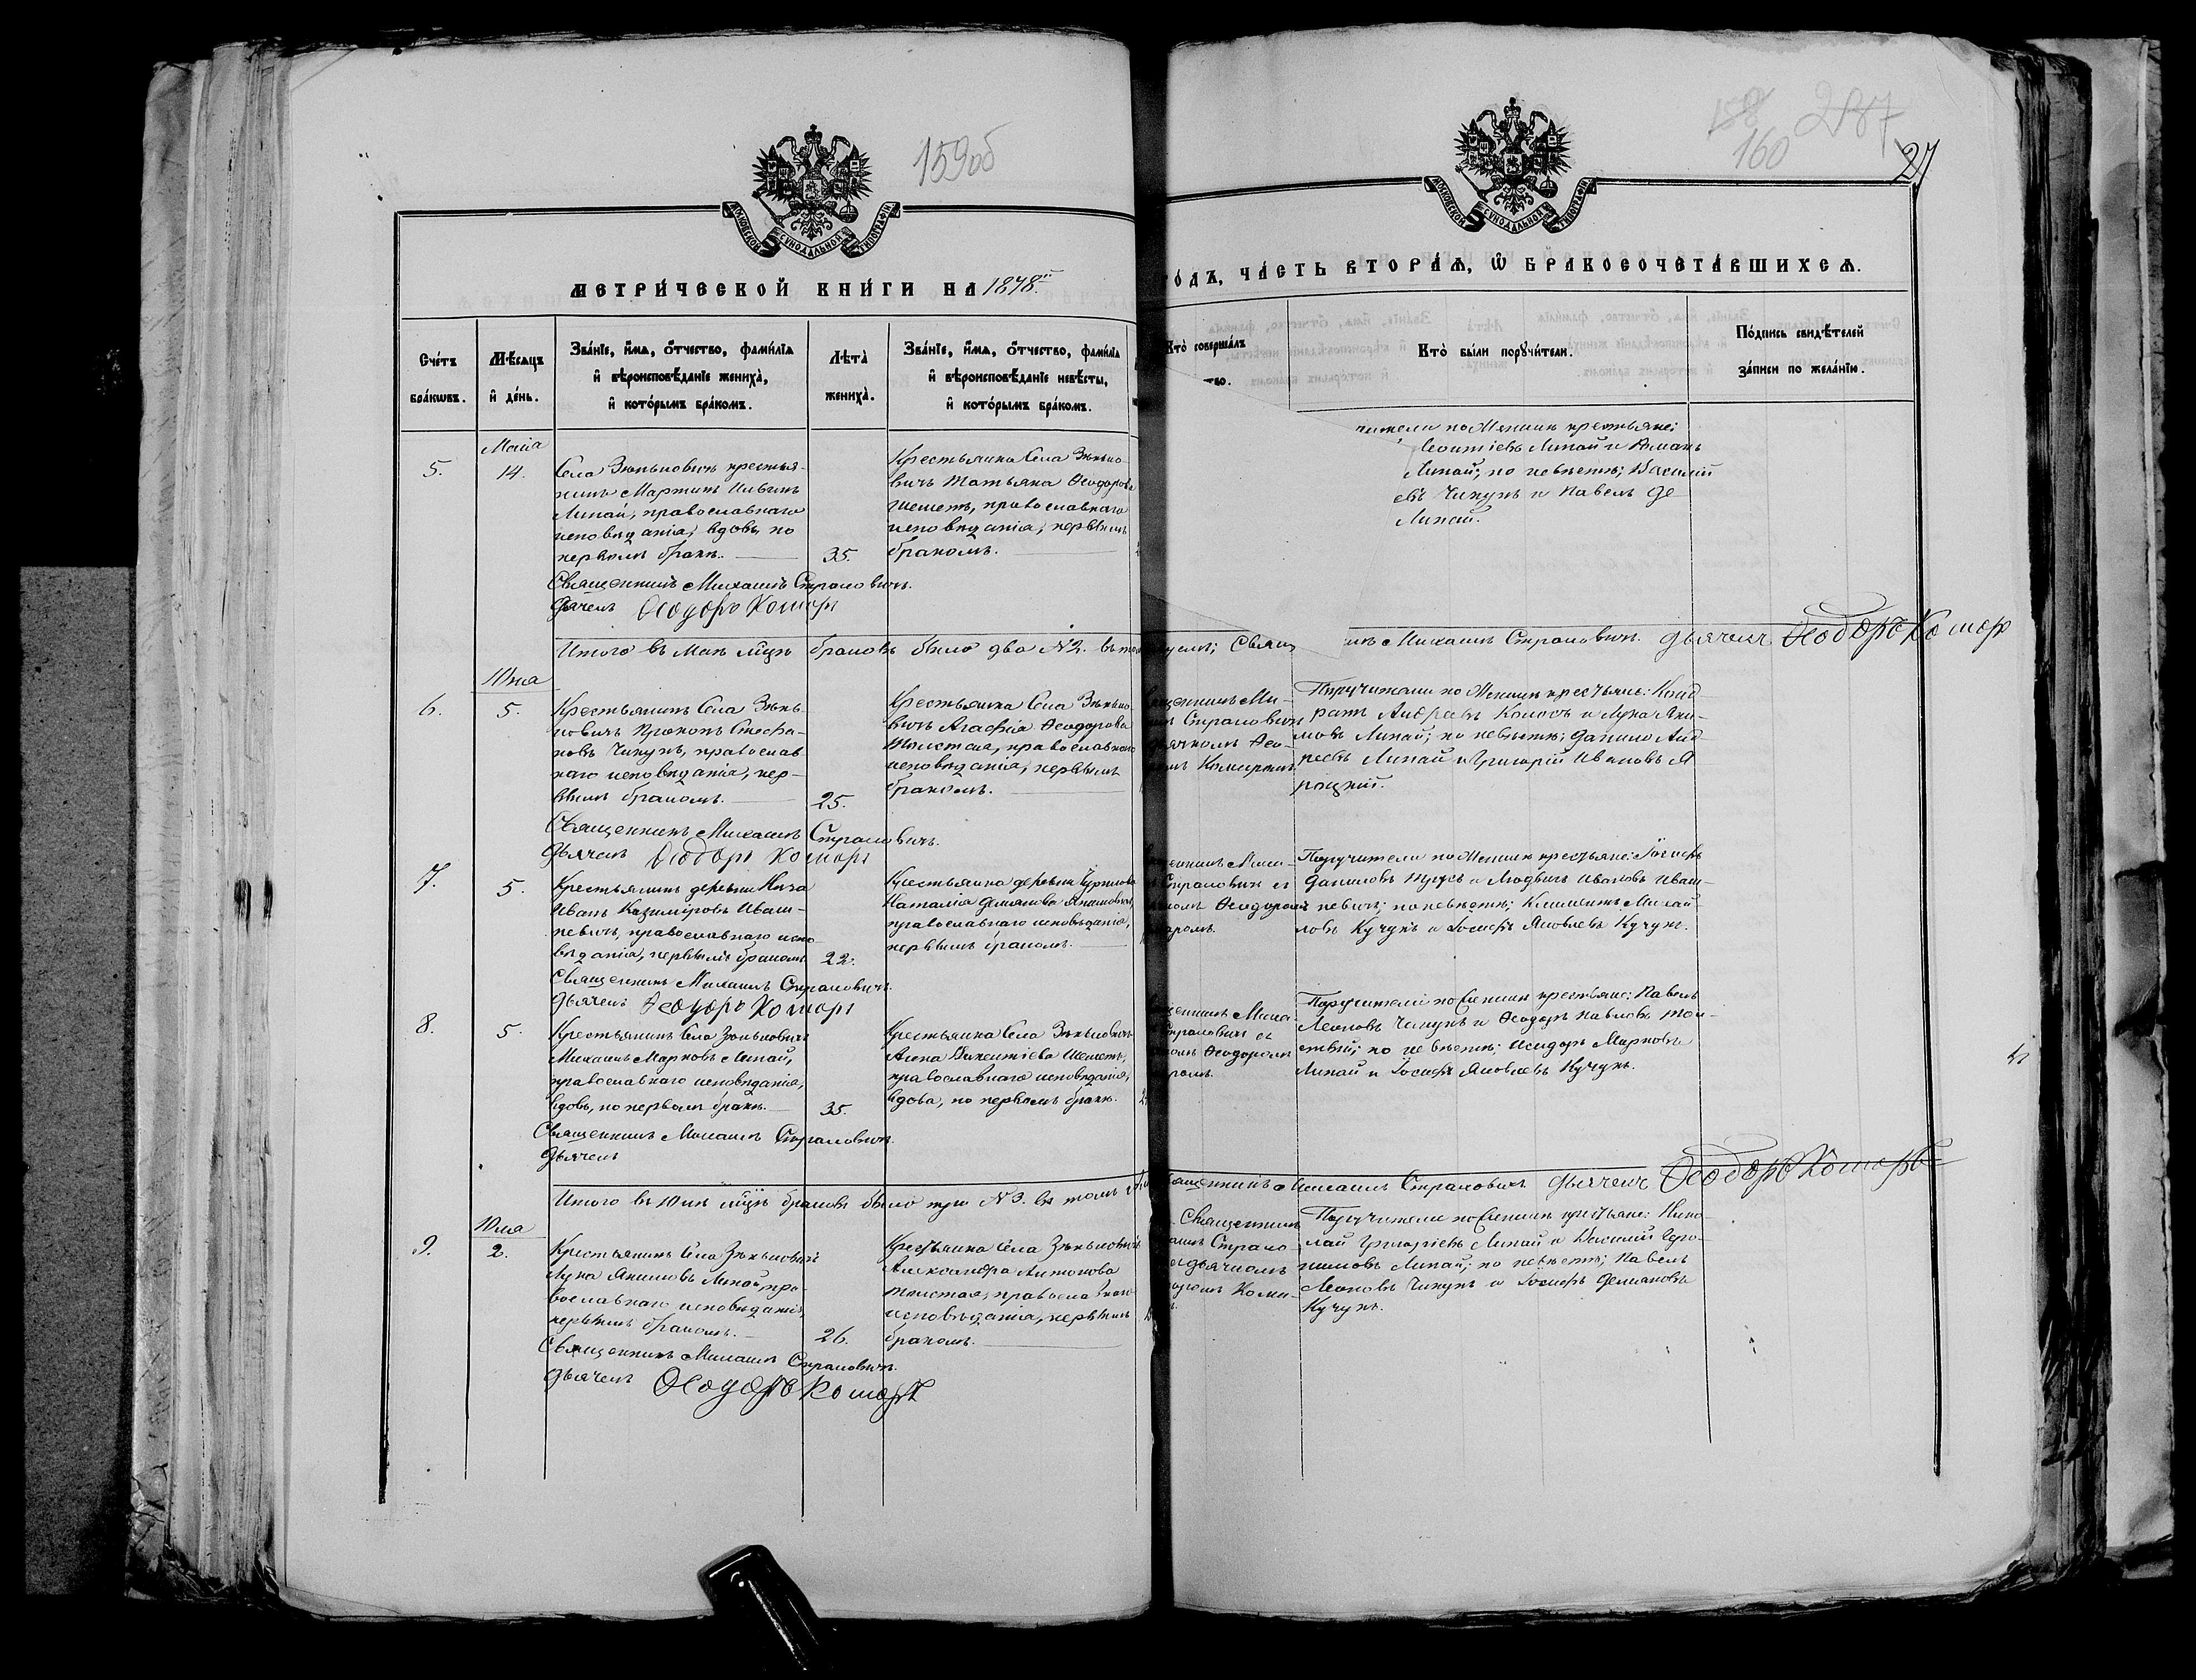 159об
158
160
287
27
МОСКОВСКОЙ СѴНОДАЛЬНОЙ ТИПОГРАФІИ
МОСКОВСКОЙ СѴНОДАЛЬНОЙ ТИПОГРАФІИ
МЕТРИ́ЧЕСКОЙ КНИ́ГИ НА 1878й
ГО́ДЪ, ЧА́СТЬ ВТОРА́Я, Ѡ҆ БРАКОСОЧЕТА́ВШИХСЯ.
Сче́тъ
бра́кѡвъ.
Мѣ́сяцъ
и҆ де́нь.
Зва́нїе, и҆́мя, ѻ҆́тчество, фами́лїя
и҆ вѣроисповѣ́данїе жениха̀,
и҆ кото́рымъ бра́комъ.
Лѣта̀
жениха̀.
Зва́нїе, и҆́мя, ѻ҆́тчество, фами́лїя
и҆ вѣроисповѣ́данїе невѣ́сты,
и҆ кото́рымъ бра́комъ.
Кто̀ соверша́лъ
тво.
Кто̀ бы́ли порꙋчи́тели.
По́дпись свидѣ́телей
за́писи по жела́нїю.
Маія
5.
14.
Села Зѣньковичъ крестья-
нинъ Мартинъ Ильинъ
Липай, православнаго
исповѣданія, вдовъ по
первомъ бракѣ.
35.
Крестьянка Села Зѣнько-
вичъ Татьяна Ѳеодорова
Шеметъ, православнаго
исповѣданія, первымъ
бракомъ.
чители по Женихѣ крестьяне:
Леонтіевъ Липай и Романъ
Липай; по невѣстѣ; Василій
евъ Чикунъ и Павелъ Де
Липай.
Священникъ Михаилъ Страловичъ.
Дьячекъ Ѳеодоръ Комаръ
Итого въ Маѣ м҃цѣ браковъ было два №2. въ то
Свящ
икъ Михаилъ Страловичъ. Дьячекъ Ѳеодоръ Комаръ
Юнія
6.
5.
Крестьянинъ Села Зѣнь-
ковичъ Прокопъ Стефа-
новъ Чикунъ, православ
наго исповѣданія, пер-
вымъ бракомъ.
25.
Крестьянка Села Зѣнько-
вичъ Агафія Ѳеодорова
Толстая, православнаго
исповѣданія, первымъ
бракомъ.
щенникъ Ми-
Страловичъ
дьячкомъ Ѳео-
Комаромъ
Поручители по Женихѣ крестьяне: Конд-
ратъ Андреевъ Колосъ и Лука Яки-
мовъ Липай; по невѣстѣ; Данило Анд-
реевъ Липай и Григорій Ивановъ Я
роцкій.
Священникъ Михаилъ Страловичъ.
Дьячекъ Ѳеодоръ Комаръ
7.
5.
Крестьянинъ деревни
Иванъ Казиміровъ Иваш-
кевичъ, православнаго испо
вѣданія, первымъ бракомъ
22.
Крестьянка деревни
Наталія Демянова Якимовичъ,
православнаго исповѣданія,
первымъ бракомъ.
Страловичъ съ
Ѳеодоромъ
аромъ.
Поручители по Женихѣ крестьяне: Іосифъ
Даниловъ Трусъ и Людвигъ Ивановъ Иваш-
кевичъ; по невѣстѣ; Климентъ Михай-
ловъ Кучукъ и Іосифъ Яковлевъ Кучукъ.
Священникъ Михаилъ Страловичъ.
Дьячекъ Ѳеодоръ Комаръ
8.
5.
Крестьянинъ Села Зѣньковичъ
Михаилъ Марковъ Липай,
православнаго исповѣданія,
вдовъ, по первомъ бракѣ.
35.
Крестьянка Села Зѣньковичъ
Анна Викентіева Шеметъ,
православнаго исповѣданія,
вдова, по первомъ бракѣ.
щенникъ Миха-
Страловичъ съ
комъ Ѳеодоромъ
ромъ.
Поручители по Женихѣ крестьяне: Павелъ
Леоновъ Чикунъ и Ѳеодоръ Павловъ Тол-
стый; по невѣстѣ; Исидоръ Марковъ
Липай и Іосифъ Яковлевъ Кучукъ.
Священникъ Михаилъ Страловичъ.
Дьячекъ
Итого въ Юнѣ м҃цѣ браковъ было три №3. въ томъ
ященникъ Михаилъ Страловичъ Дьячекъ Ѳеодоръ Комаръ
Юлія
9.
2.
Крестьянинъ Села Зѣньковичъ
Лука Якимовъ Липай, пра-
вославнаго исповѣданія,
первымъ бракомъ.
26.
Крестьянка Села Зѣньковичъ
Александра Антонова
Толстая, православнаго
исповѣданія, первымъ
бракомъ.
Священникъ
аилъ Страло-
съ дьячкомъ
Кома-
Поручители по Женихѣ крестьяне: Нико-
лай Григоріевъ Липай и Василій
Липай; по невѣстѣ; Павелъ
Леоновъ Чикунъ и Іосифъ Демяновъ
Кучукъ.
Священникъ Михаилъ Страловичъ.
Дьячекъ Ѳеодоръ Комаръ